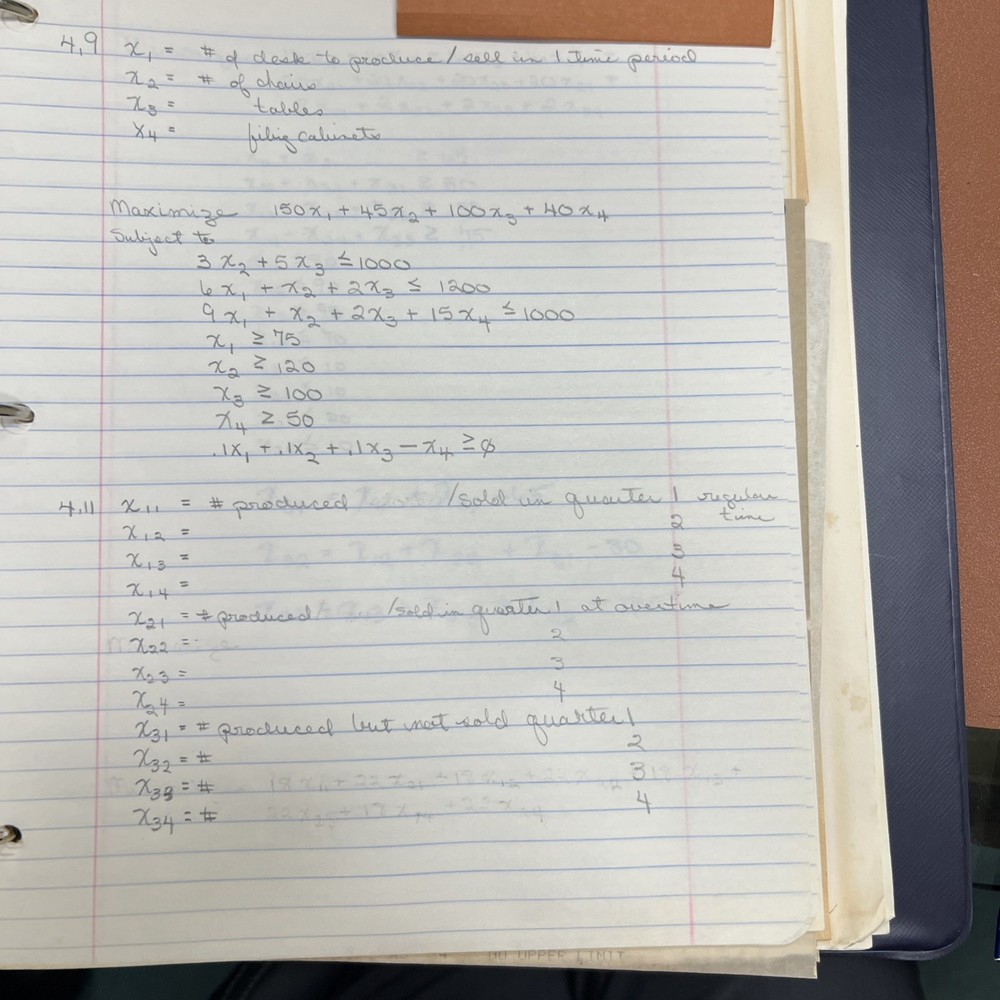 4.9 x₁ = # of desk to produce/sell in 1 time period
x₂ = # of chairs
x₃ = tables
x₄ = filing cabinets
Maximize 150x₁ + 45x₂ + 100x₃ + 40x₄
Subject to
3x₂ + 5x₃ ≤ 1000
6x₁ + x₂ + 2x₃ ≤ 1200
9x₁ + x₂ + 2x₃ + 15x₄ ≤ 1000
x₁ ≥ 75
x₂ ≥ 120
x₃ ≥ 100
x₄ ≥ 50
.1x₁ + .1x₂ + .1x₃ − x₄ ≥ 0
4.11 x₁₁ = # produced /sold in quarter 1 regular time
x₁₂ = 2
x₁₃ = 3
x₁₄ = 4
x₂₁ = # produced /sold in quarter 1 at overtime
x₂₂ = 2
x₂₃ = 3
x₂₄ = 4
x₃₁ = # produced but not sold quarter 1
x₃₂ = # 2
x₃₃ = # 3
x₃₄ = # 4
NO UPPER LIMIT